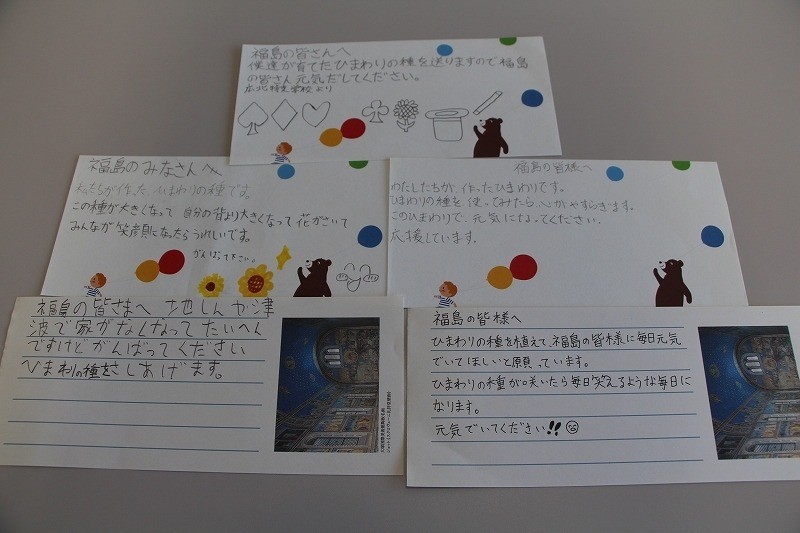 福島の皆さんへ
僕達が育てたひまわりの種を送りますので福島
の皆さん元気だしてください。
広北特支学校より
福島のみなさんへ
私たちが作った ひまわりの種です。
この種が大きくなって 自分の背より大きくなって花がさいて
みんなが笑顔になったらうれしいです。
がんばって下さい。
福島の皆様へ
わたしたちが、作ったひまわりです。
ひまわりの種を使ってみたら、心がやすらぎます。
このひまわりで、元気になってください
応援しています。
福島の皆さまへ 地しんや津
波で家がなくなってたいへん
ですけどがんばってください
ひまわりの種をさしあげます。
福島の皆様へ
ひまわりの種を植えて、福島の皆様に毎日元気
でいてほしいと願っています。
ひまわりの種が咲いたら毎日笑えるような毎日に
なります。
元気でいてください!!